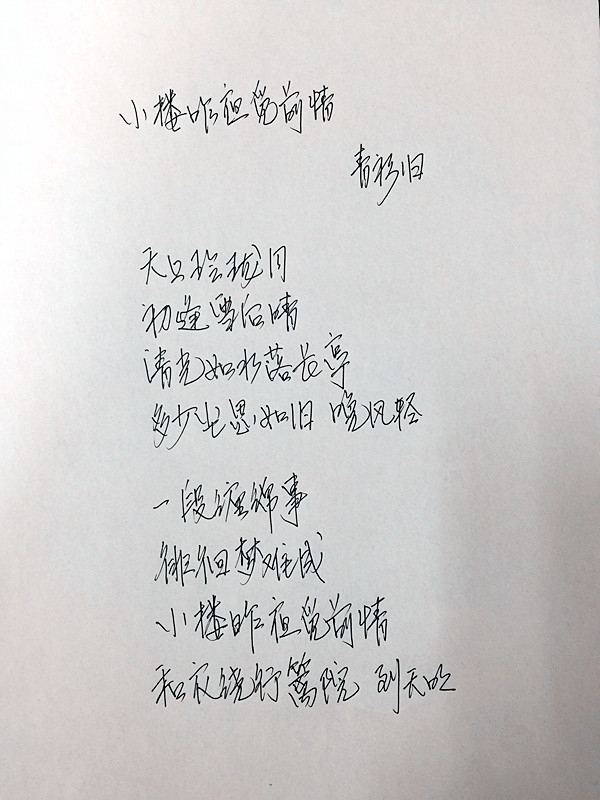 小楼昨夜觅前情
青衫旧
天上玲珑月
初逢雪后晴
清光如水落长亭
多少思如旧 晚风轻
一段缠绵事
徘徊梦难成
小楼昨夜觅前情
和衣绕行篱院 到天明